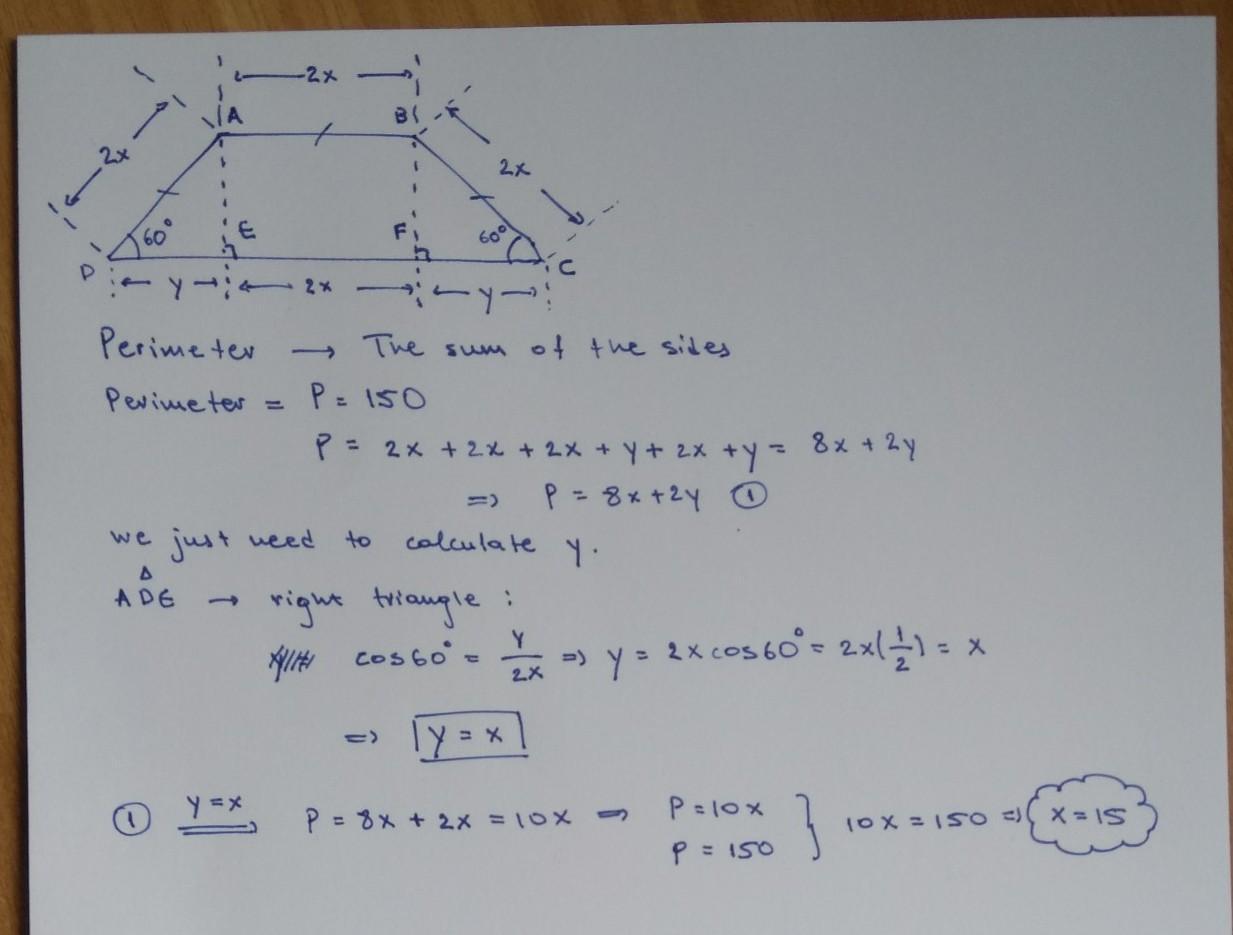 2x
A
B
2x
2x
60°
E
F
60°
D
C
y
2x
y
Perimeter → The sum of the sides
Perimeter = P = 150
P = 2x + 2x + 2x + y + 2x + y = 8x + 2y
=> P = 8x + 2y ①
we just need to calculate y.
Δ
ADE → right triangle :
cos60° = y/2x => y = 2x cos60° = 2x(1/2) = x
=> y = x
① y=x P = 8x + 2x = 10x => P = 10x
P = 150 } 10x = 150 => x = 15